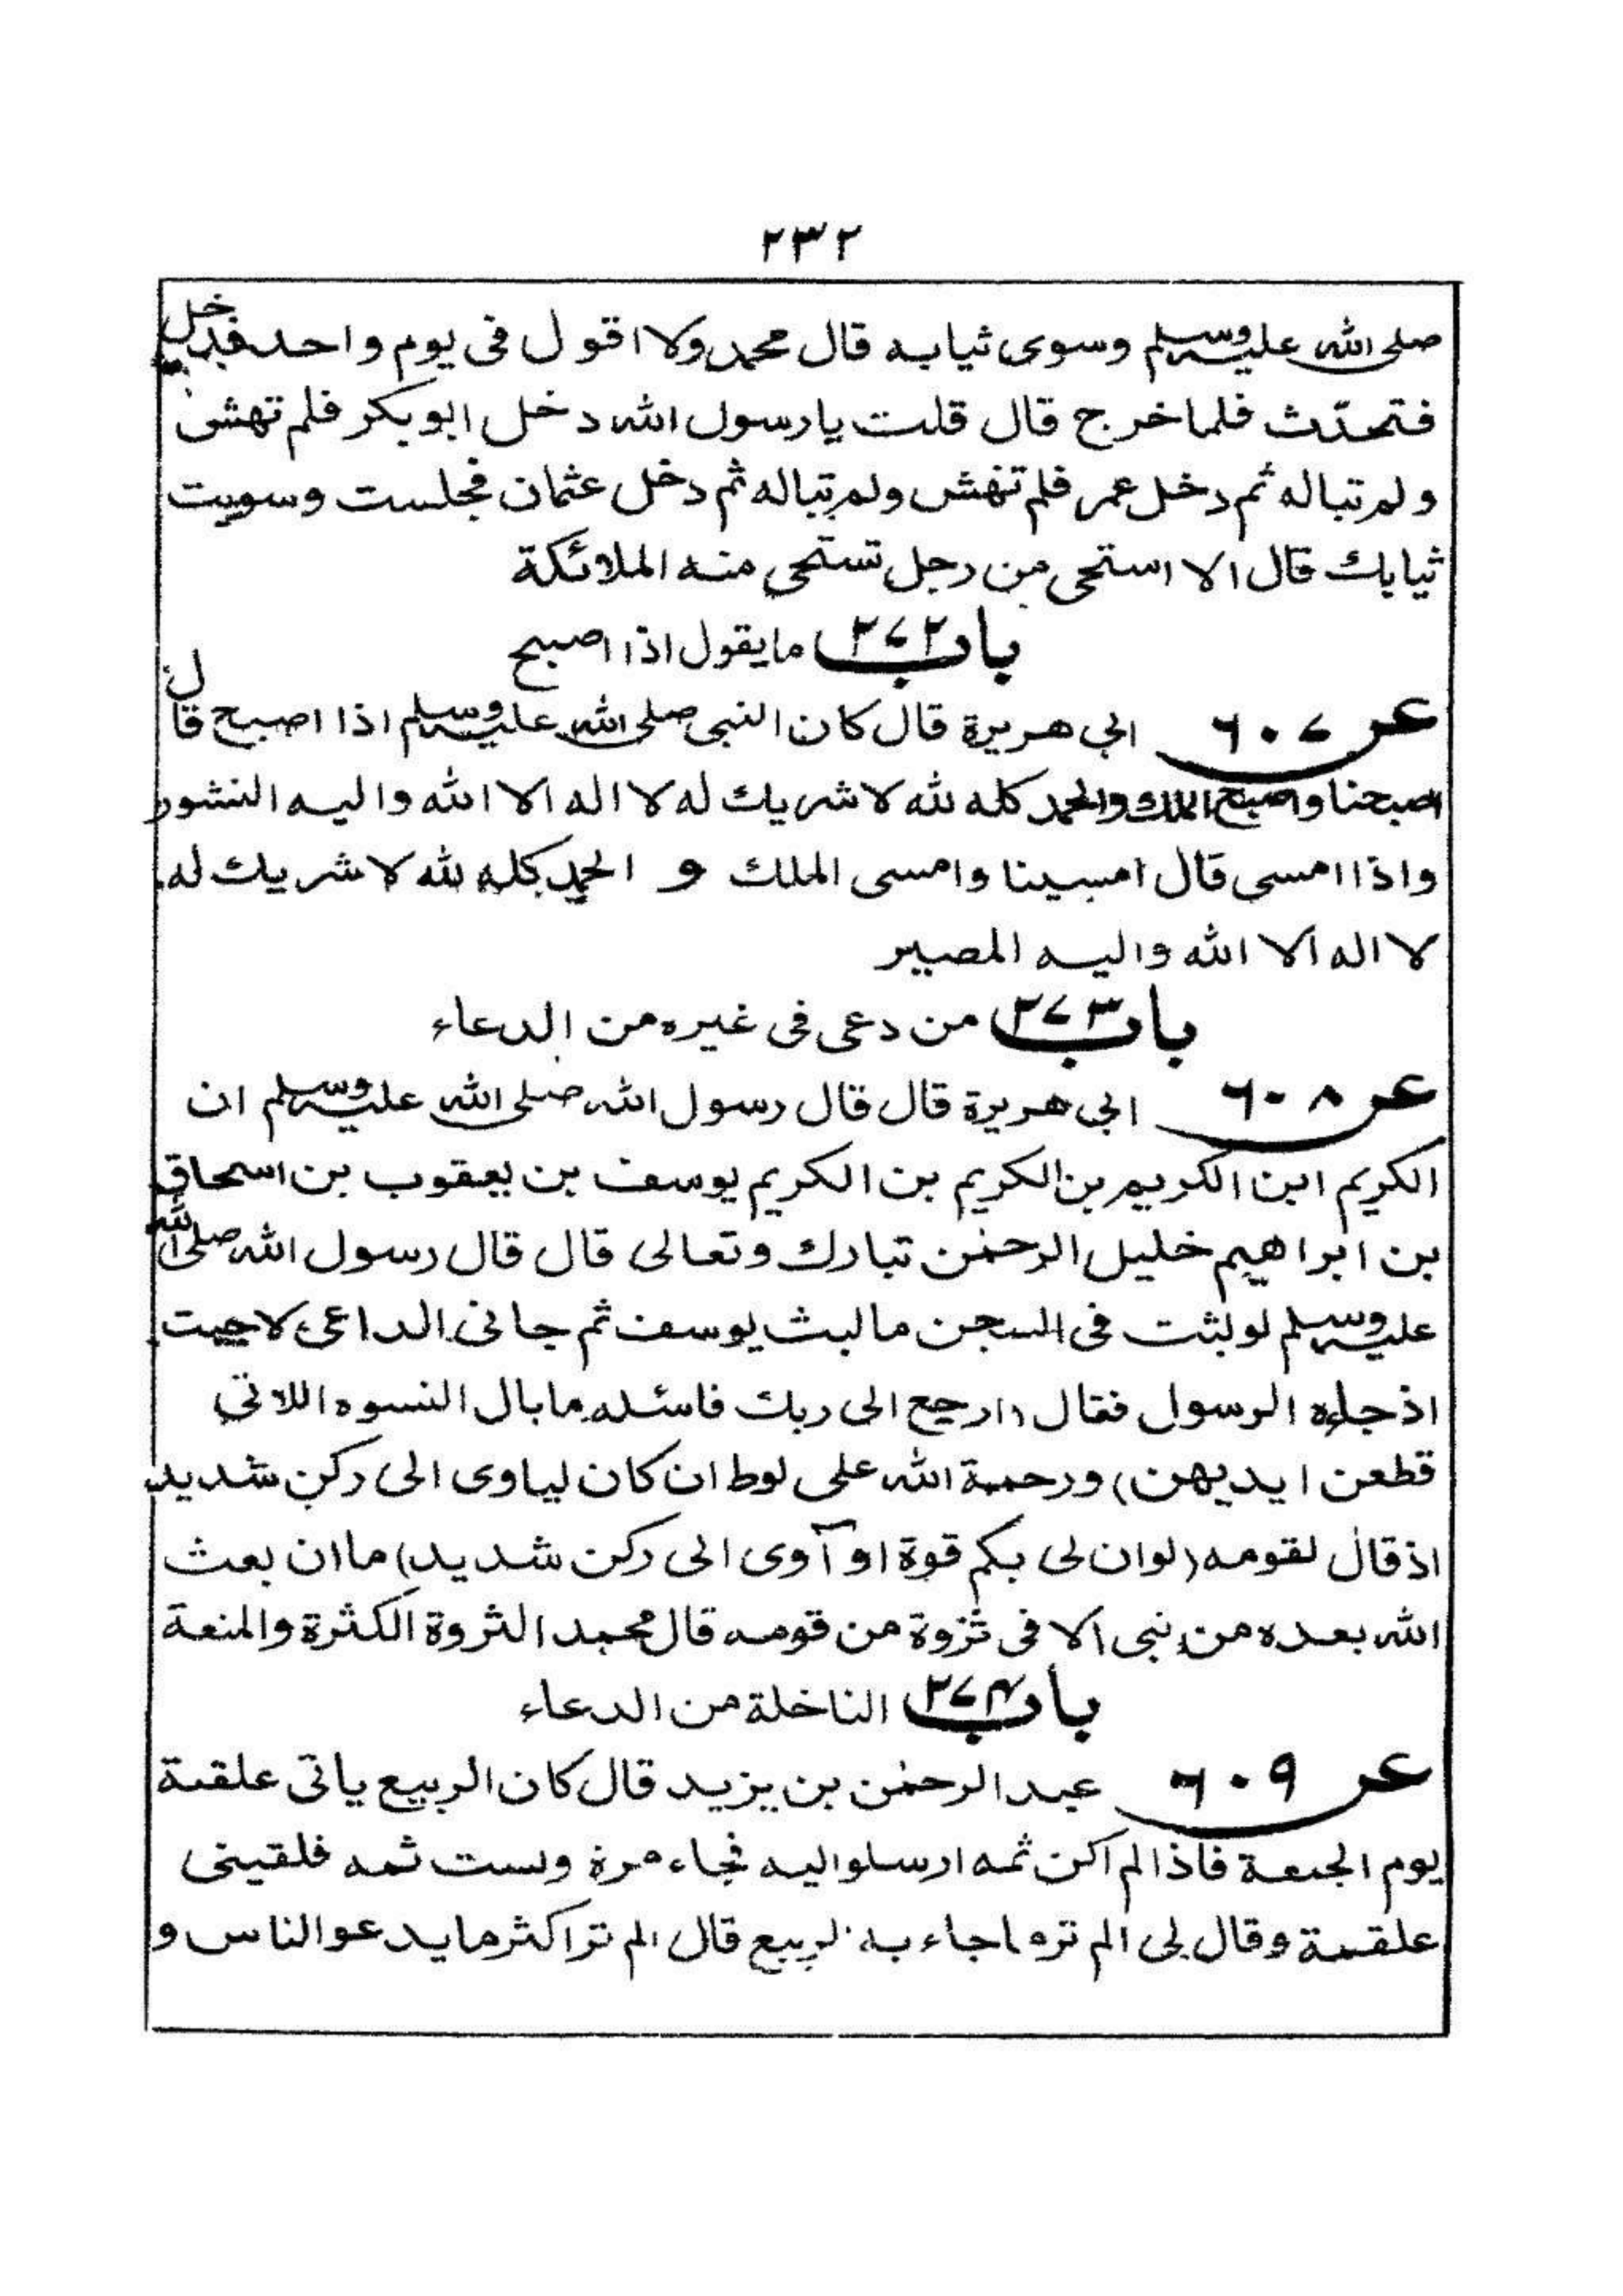 ٢٣٢
صلى الله عليه وسلم وسوى ثيابه قال محمد ولا اقول فى يوم واحد فدخل
فتحدّث فلما خرج قال قلت يا رسول الله دخل ابو بكر فلم تهش
ولم تباله ثم دخل عمر فلم تهش ولم تباله ثم دخل عثمان فجلست وسويت
ثيابك قال الا استحى من رجل تستحى منه الملائكة
باب ٢٧٢ ما يقول اذا اصبح
عن ٦٠٧ ابي هريرة قال كان النبى صلى الله عليه وسلم اذا اصبح قال
اصبحنا واصبح الملك والحمد كله لله لا شريك له لا اله الا الله واليه النشور
واذا امسى قال امسينا وامسى الملك و الحمد كله لله لا شريك له
لا اله الا الله واليه المصير
باب ٢٧٣ من دعى فى غيره من الدعاء
عن ٦٠٨ ابي هريرة قال قال رسول الله صلى الله عليه وسلم ان
الكريم ابن الكريم بن الكريم بن الكريم يوسف بن يعقوب بن اسحاق
بن ابراهيم خليل الرحمٰن تبارك وتعالى قال قال رسول الله صلى الله
عليه وسلم لو لبثت فى السجن ما لبث يوسف ثم جانى الداعى لاجبت
اذ جاءه الرسول فقال (ارجع الى ربك فاسئله ما بال النسوه اللاتي
قطعن ايديهن) ورحمة الله على لوط ان كان لياوى الى ركن شديد
اذ قال لقومه (لو ان لى بكم قوة او آوى الى ركن شديد) ما ان بعث
الله بعده من نبى الا فى ثروة من قومه قال محمد الثروة الكثرة والمنعة
باب ٢٧٤ الناخلة من الدعاء
عن ٦٠٩ عبد الرحمٰن بن يزيد قال كان الربيع ياتى علقمة
يوم الجمعة فاذا لم اكن ثمه ارسلوا اليه فجاء مرة ولست ثمه فلقينى
علقمة وقال لى الم تر ما جاء به الربيع قال الم تر اكثر ما يدعو الناس و